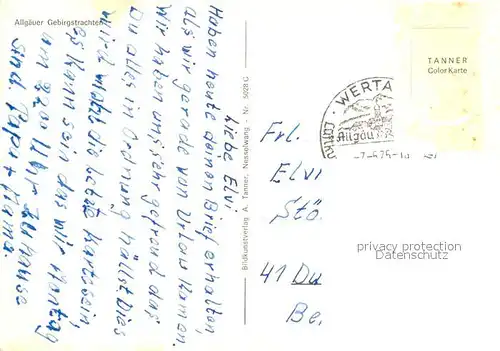 Allgäuer Gebirgstrachten
Liebe Elvi
Haben heute deinen Brief erhalten
als wir gerade von Urlaub kamen.
Wir haben uns sehr gefreud das
Du alles in Ordnung hällst Dies
wird wohl die letzte Karte sein,
es kann sein das wir Montag
um 2200 Uhr zu hause
sind Papa + Mama.
Bildkunstverlag A. Tanner, Nesselwang - Nr. 5028 G
TANNER
Color Karte
WERTA
Allgäu
Frl.
Elvi
Stö.
41 Du
Be.
privacy protection
Datenschutz